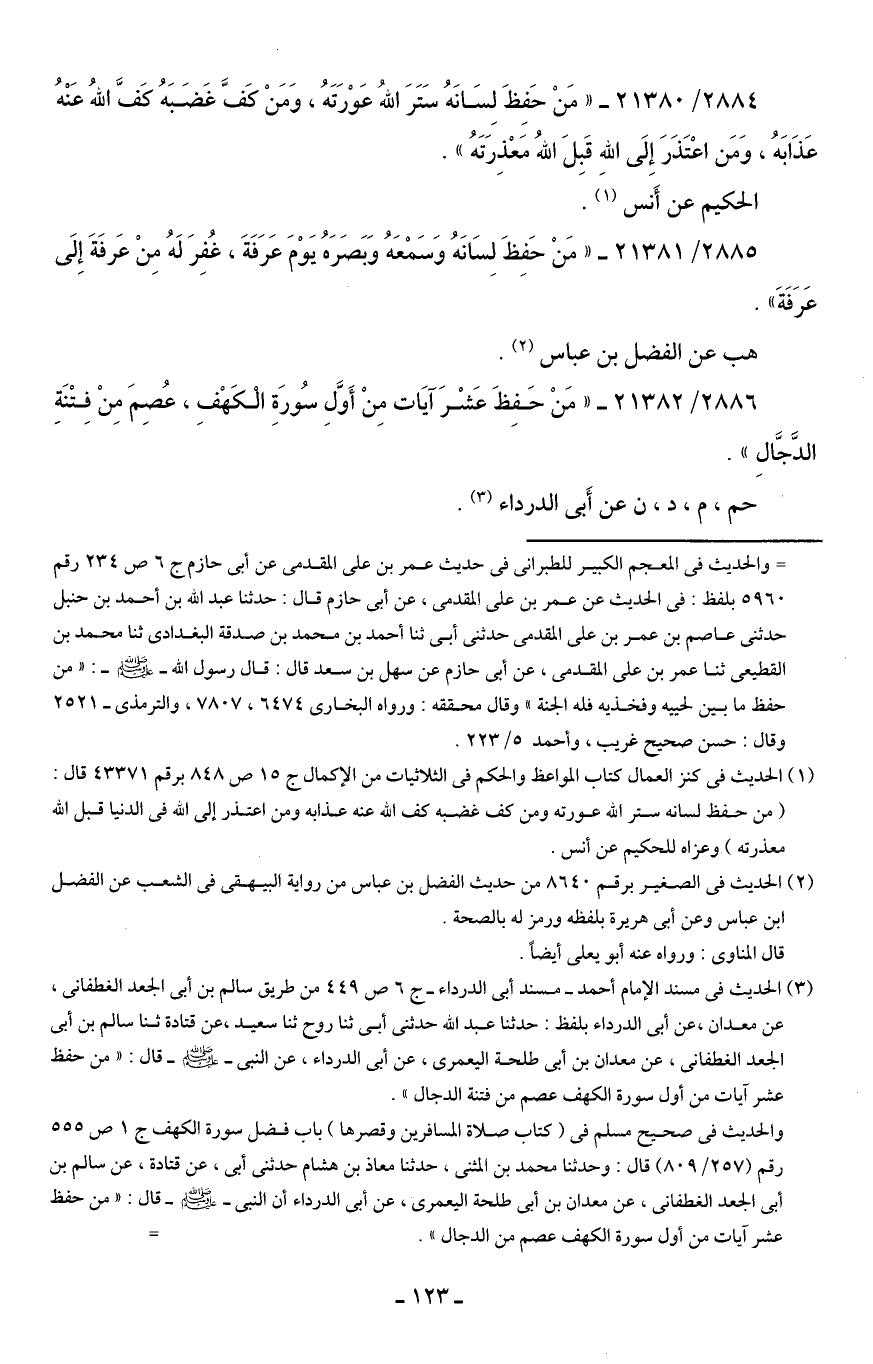 ٢٨٨٤/ ٢١٣٨٠ ـ « مَنْ حَفِظَ لِسَانَهُ سَتَرَ اللهُ عَوْرَتَهُ ، وَمَنْ كَفَّ غَضَبَهُ كَفَّ اللهُ عَنْهُ
عَذَابَهُ ، وَمَن اعْتَذَرَ إِلَى اللهِ قَبِلَ اللهُ مَعْذِرَتَهُ » .
الحكيم عن أَنس (١) .
٢٨٨٥/ ٢١٣٨١ ـ « مَنْ حَفِظَ لِسَانَهُ وَسَمْعَهُ وَبَصَرَهُ يَوْمَ عَرَفَةَ ، غُفِرَ لَهُ مِنْ عَرفَةَ إِلَى
عَرَفَةَ» .
هب عن الفضل بن عباس (٢) .
٢٨٨٦/ ٢١٣٨٢ ـ « مَنْ حَفِظَ عَشْرَ آيَات مِنْ أَوَّلِ سُورَةِ الْكَهْفِ ، عُصِمَ مِنْ فِتْنَةِ
الدَّجَّالِ » .
حم ، م ، د ، ن عن أَبى الدرداء (٣) .
= والحديث فى المعجم الكبير للطبرانى فى حديث عمر بن على المقدمى عن أبى حازم ج ٦ ص ٢٣٤ رقم
٥٩٦٠ بلفظ : فى الحديث عن عمر بن على المقدمى ، عن أبى حازم قال : حدثنا عبد الله بن أحمد بن حنبل
حدثنى عاصم بن عمر بن على المقدمى حدثنى أبى ثنا أحمد بن محمد بن صدقة البغدادى ثنا محمد بن
القطيعى ثنا عمر بن على المقدمى ، عن أبى حازم عن سهل بن سعد قال : قال رسول الله ـ ﷺ ـ : « من
حفظ ما بين لحييه وفخذيه فله الجنة » وقال محققه : ورواه البخارى ٦٤٧٤ ، ٧٨٠٧ ، والترمذى ـ ٢٥٢١
وقال : حسن صحيح غريب ، وأحمد ٥/ ٢٢٣ .
(١) الحديث فى كنز العمال كتاب المواعظ والحكم فى الثلاثيات من الإكمال ج ١٥ ص ٨٤٨ برقم ٤٣٣٧١ قال :
( من حفظ لسانه ستر الله عورته ومن كف غضبه كف الله عنه عذابه ومن اعتذر إلى الله فى الدنيا قبل الله
معذرته ) وعزاه للحكيم عن أنس .
(٢) الحديث فى الصغير برقم ٨٦٤٠ من حديث الفضل بن عباس من رواية البيهقى فى الشعب عن الفضل
ابن عباس وعن أبى هريرة بلفظه ورمز له بالصحة .
قال المناوى : ورواه عنه أبو يعلى أيضاً .
(٣) الحديث فى مسند الإمام أحمد ـ مسند أبى الدرداء ـ ج ٦ ص ٤٤٩ من طريق سالم بن أبى الجعد الغطفانى ،
عن معدان ،عن أبى الدرداء بلفظ : حدثنا عبد الله حدثنى أبى ثنا روح ثنا سعيد ،عن قتادة ثنا سالم بن أبى
الجعد الغطفانى ، عن معدان بن أبى طلحة اليعمرى ، عن أبى الدرداء ، عن النبى ـ ﷺ ـ قال : « من حفظ
عشر آيات من أول سورة الكهف عصم من فتنة الدجال » .
والحديث فى صحيح مسلم فى ( كتاب صلاة المسافرين وقصرها ) باب فضل سورة الكهف ج ١ ص ٥٥٥
رقم (٢٥٧/ ٨٠٩) قال : وحدثنا محمد بن المثنى ، حدثنا معاذ بن هشام حدثنى أبى ، عن قتادة ، عن سالم بن
أبى الجعد الغطفانى ، عن معدان بن أبى طلحة اليعمرى ، عن أبى الدرداء أن النبى ـ ﷺ ـ قال : « من حفظ
عشر آيات من أول سورة الكهف عصم من الدجال » . =
ـ ١٢٣ ـ